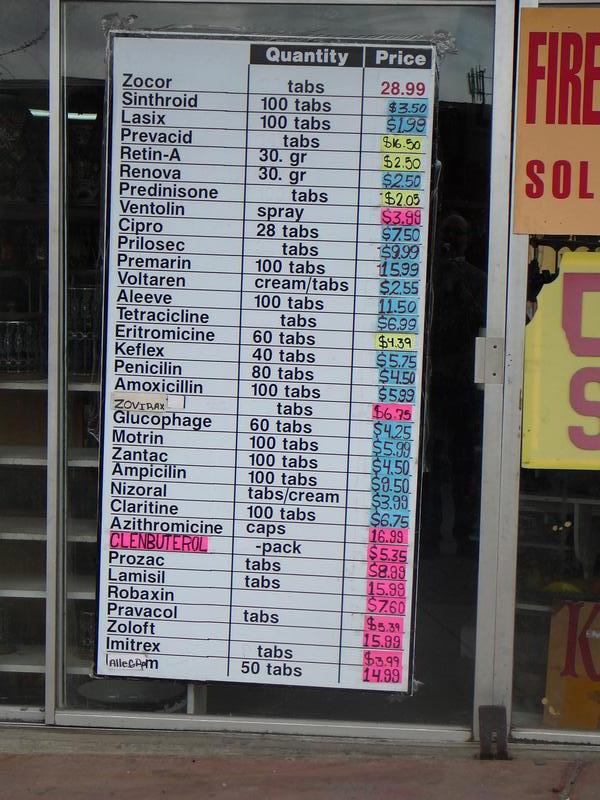 Quantity Price
Zocor tabs 28.99
Sinthroid 100 tabs $3.50
Lasix 100 tabs $1.99
Prevacid tabs $16.50
Retin-A 30. gr $2.50
Renova 30. gr $2.50
Predinisone tabs $2.05
Ventolin spray $3.99
Cipro 28 tabs $7.50
Prilosec tabs $9.99
Premarin 100 tabs 15.99
Voltaren cream/tabs $2.55
Aleeve 100 tabs 11.50
Tetracicline tabs $6.99
Eritromicine 60 tabs $4.39
Keflex 40 tabs $5.75
Penicilin 80 tabs $4.50
Amoxicillin 100 tabs $5.99
ZOVIRAX tabs $6.75
Glucophage 60 tabs $4.25
Motrin 100 tabs $5.99
Zantac 100 tabs $4.50
Ampicilin 100 tabs $9.50
Nizoral tabs/cream $3.99
Claritine 100 tabs $6.75
Azithromicine caps 16.99
CLENBUTEROL -pack $5.35
Prozac tabs $8.99
Lamisil tabs 15.99
Robaxin $7.60
Pravacol tabs $5.39
Zoloft 15.99
Imitrex tabs $3.99
AlleGRA m 50 tabs 14.99
FIRE
SOL